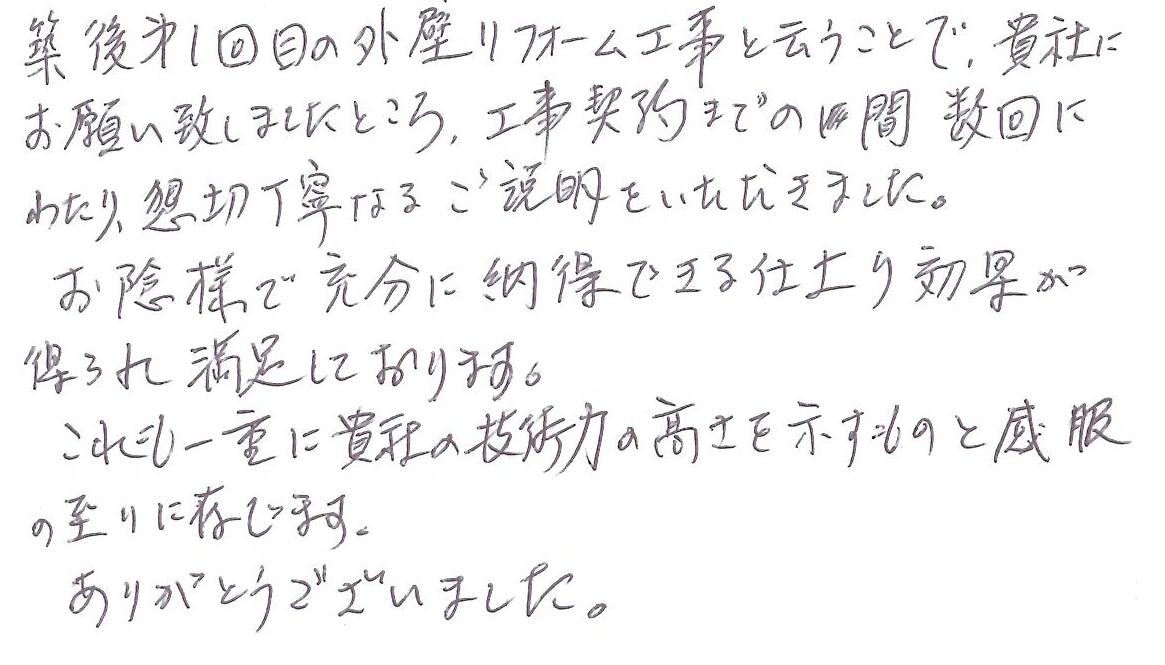 築後第1回目の外壁リフォーム工事と云うことで、貴社に
お願い致しましたところ、工事契約までの間 数回に
わたり、懇切丁寧なるご説明をいただきました。
お陰様で充分に納得できる仕上り効果が
得られ満足しております。
これも一重に貴社の技術力の高さを示すものと感服
の至りに存じます。
ありがとうございました。